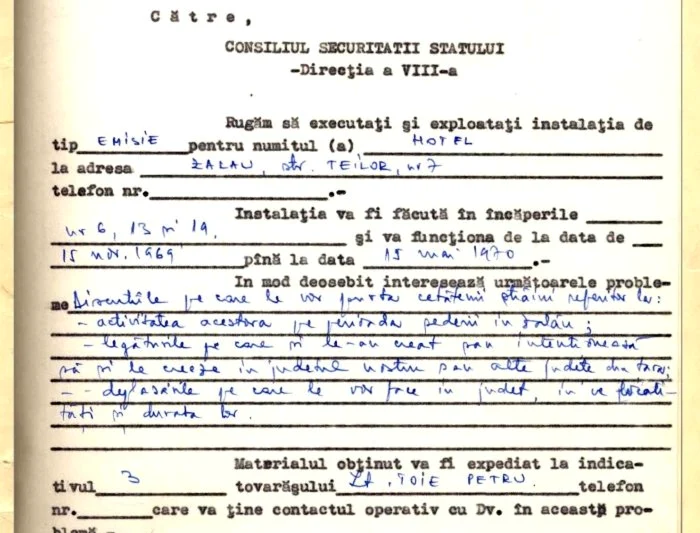 Către,
CONSILIUL SECURITATII STATULUI
-Direcţia a VIII-a
Rugăm să executaţi şi exploataţi instalaţia de
tip EMISIE pentru numitul (a) HOTEL
la adresa ZALAU, str. TEILOR, nr 7
telefon nr. .-
Instalaţia va fi făcută în încăperile
nr 6, 13 şi 19. şi va funcţiona de la data de
15 nov. 1969 pînă la data 15 mai 1970 .-
In mod deosebit interesează următoarele proble-
me Discuţiile pe care le vor purta cetăţenii străini referitor la:
- activitatea acestora pe perioada şederii în Zalău;
- legăturile pe care şi le-au creat sau intenţionează
să şi le creeze în judeţul nostru sau alte judeţe din ţară;
- deplasările pe care le vor face în judeţ, în ce locali-
tăţi şi durata lor.
Materialul obţinut va fi expediat la indica-
tivul 3 tovarăşului Lt. PETRU telefon
nr. care va ţine contactul operativ cu Dv. în această pro-
blemă.-